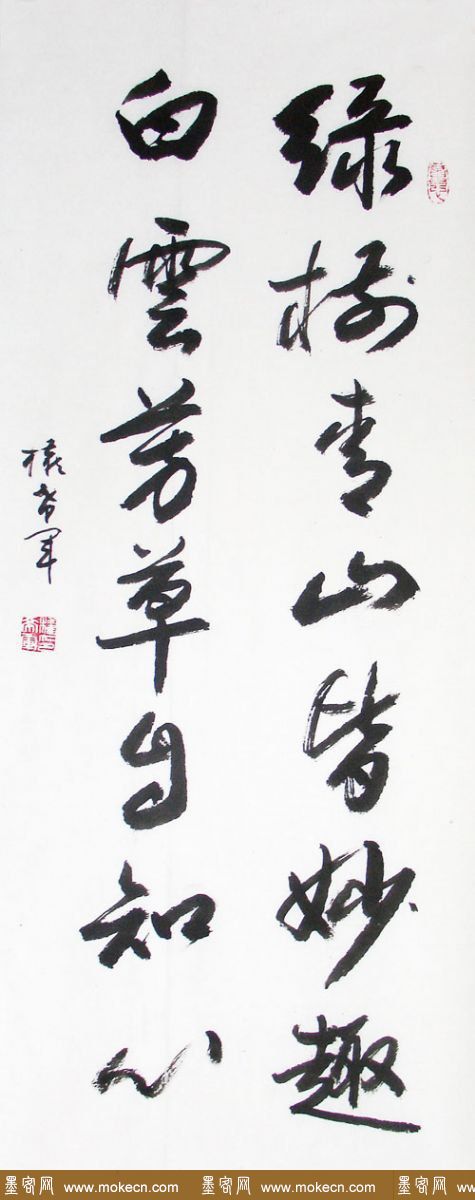 绿树青山皆妙趣
白雲芳草自知心
權希军
墨客网 www.mokecn.com 墨客网 www.mokecn.com 墨客网